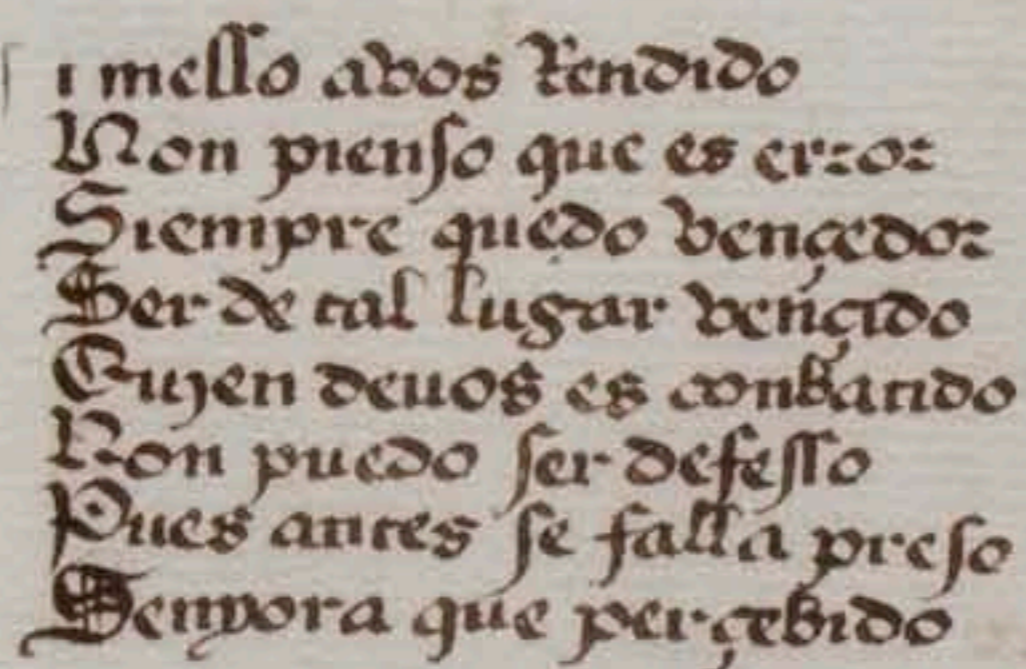 i messo avos Rendido
Non pienso que es error
Siempre quedo vençedor
Ser de tal lugar vençido
Qujen deuos es conbatido
Non puedo ser defesso
Pues antes se falla preso
Senyora que perçebido